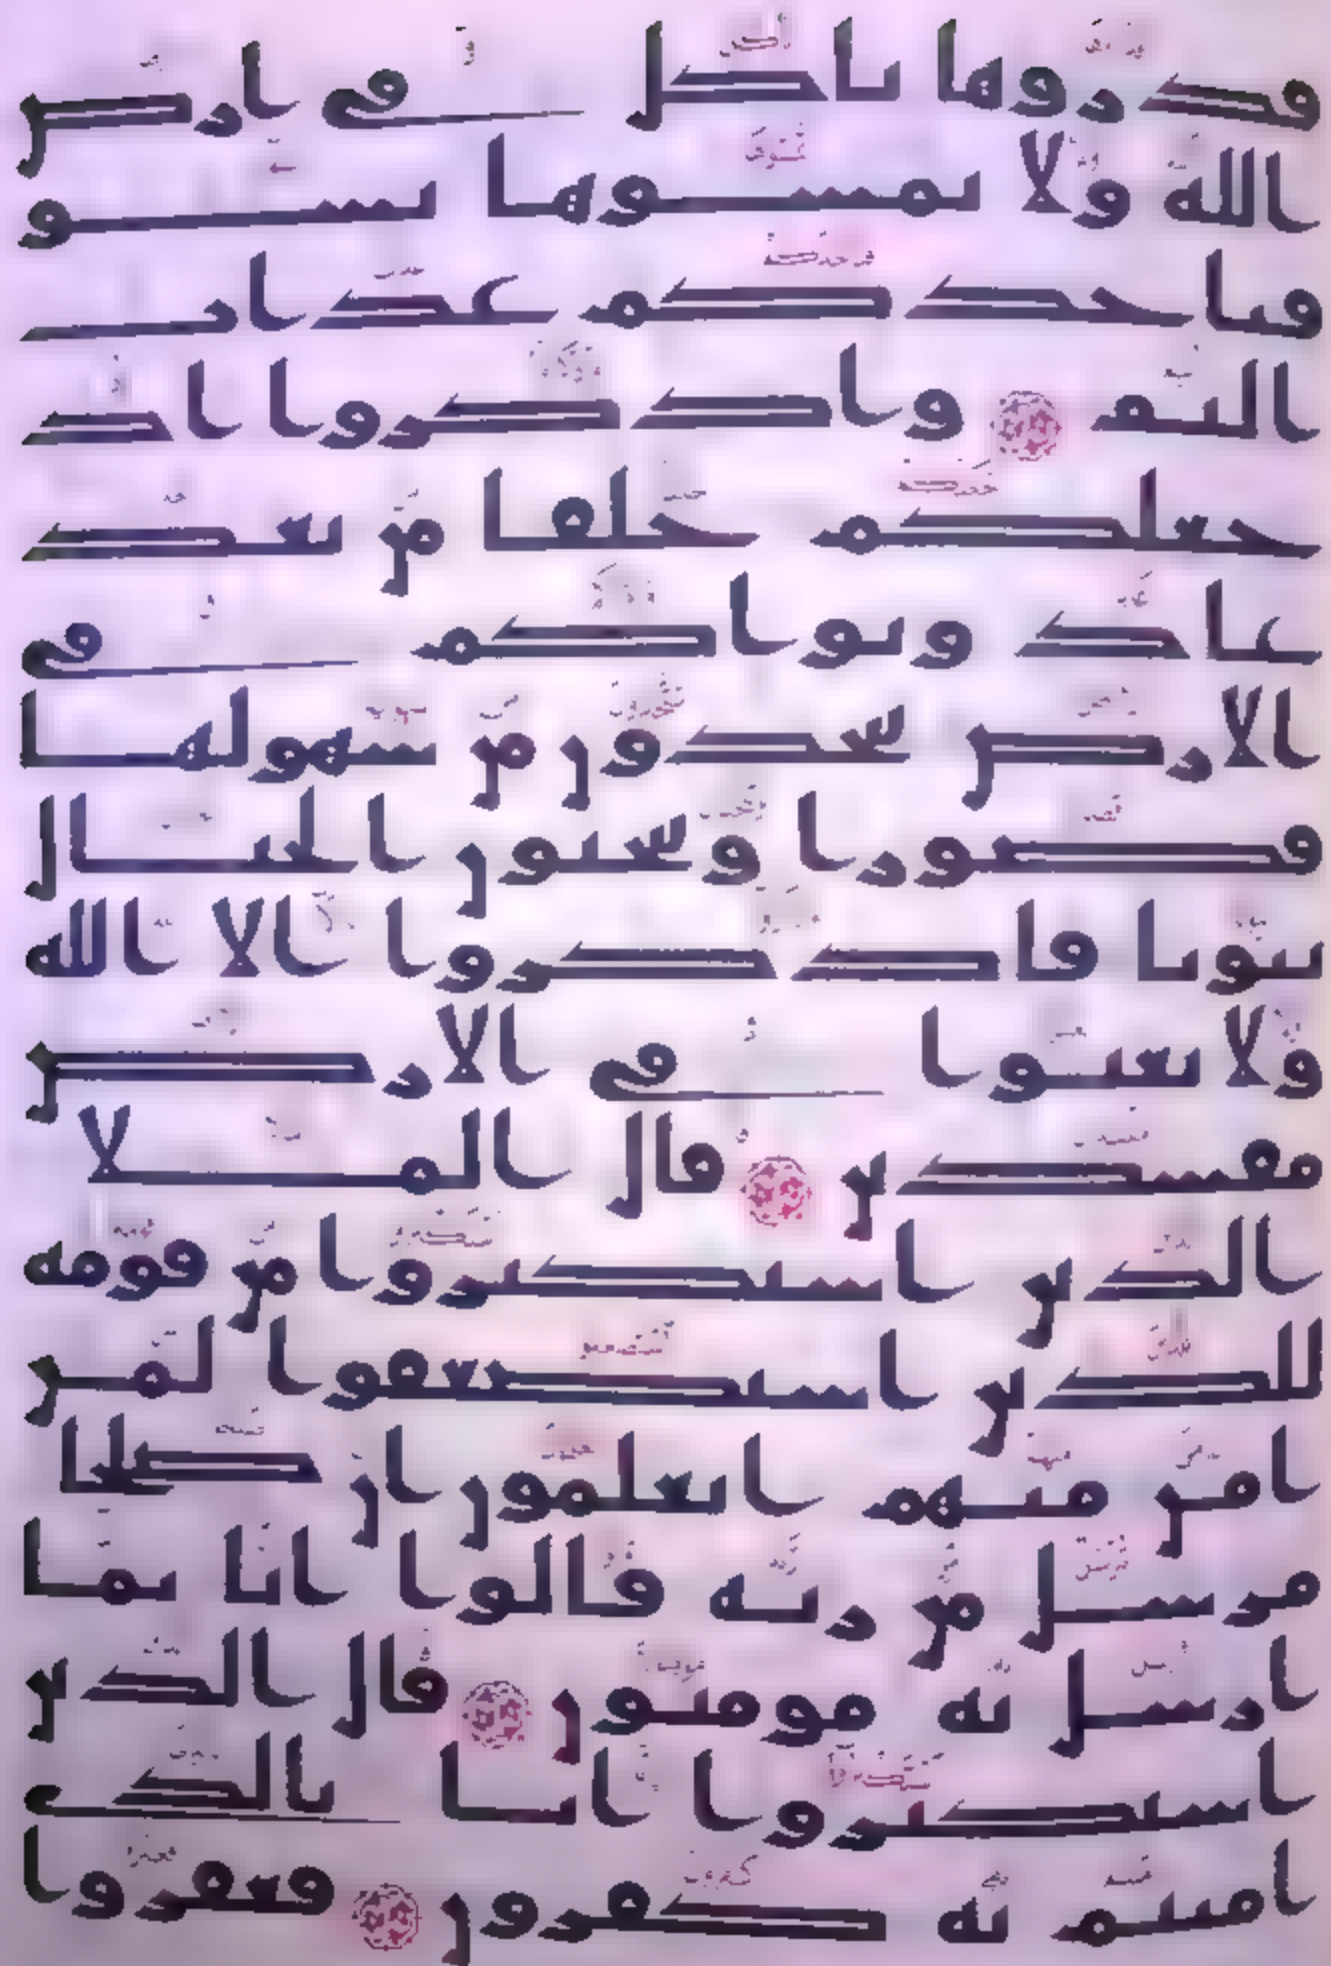 فذروها تاكل في ارض
الله ولا تمسوها بسو
فياخذكم عذاب
اليم واذكروا اذ
جعلكم خلفا من بعد
عاد وبواكم في
الارض تتخذون من سهولها
قصورا وتنحتون الجبال
بيوتا فاذكروا الا الله
ولا تعثوا في الارض
مفسدين قال الملا
الذين استكبروا من قومه
للذين استضعفوا لمن
امن منهم اتعلمون ان صلحا
مرسل من ربه قالوا انا بما
ارسل به مومنون قال الذين
استكبروا انا بالذي
امنتم به كفرون فعقروا